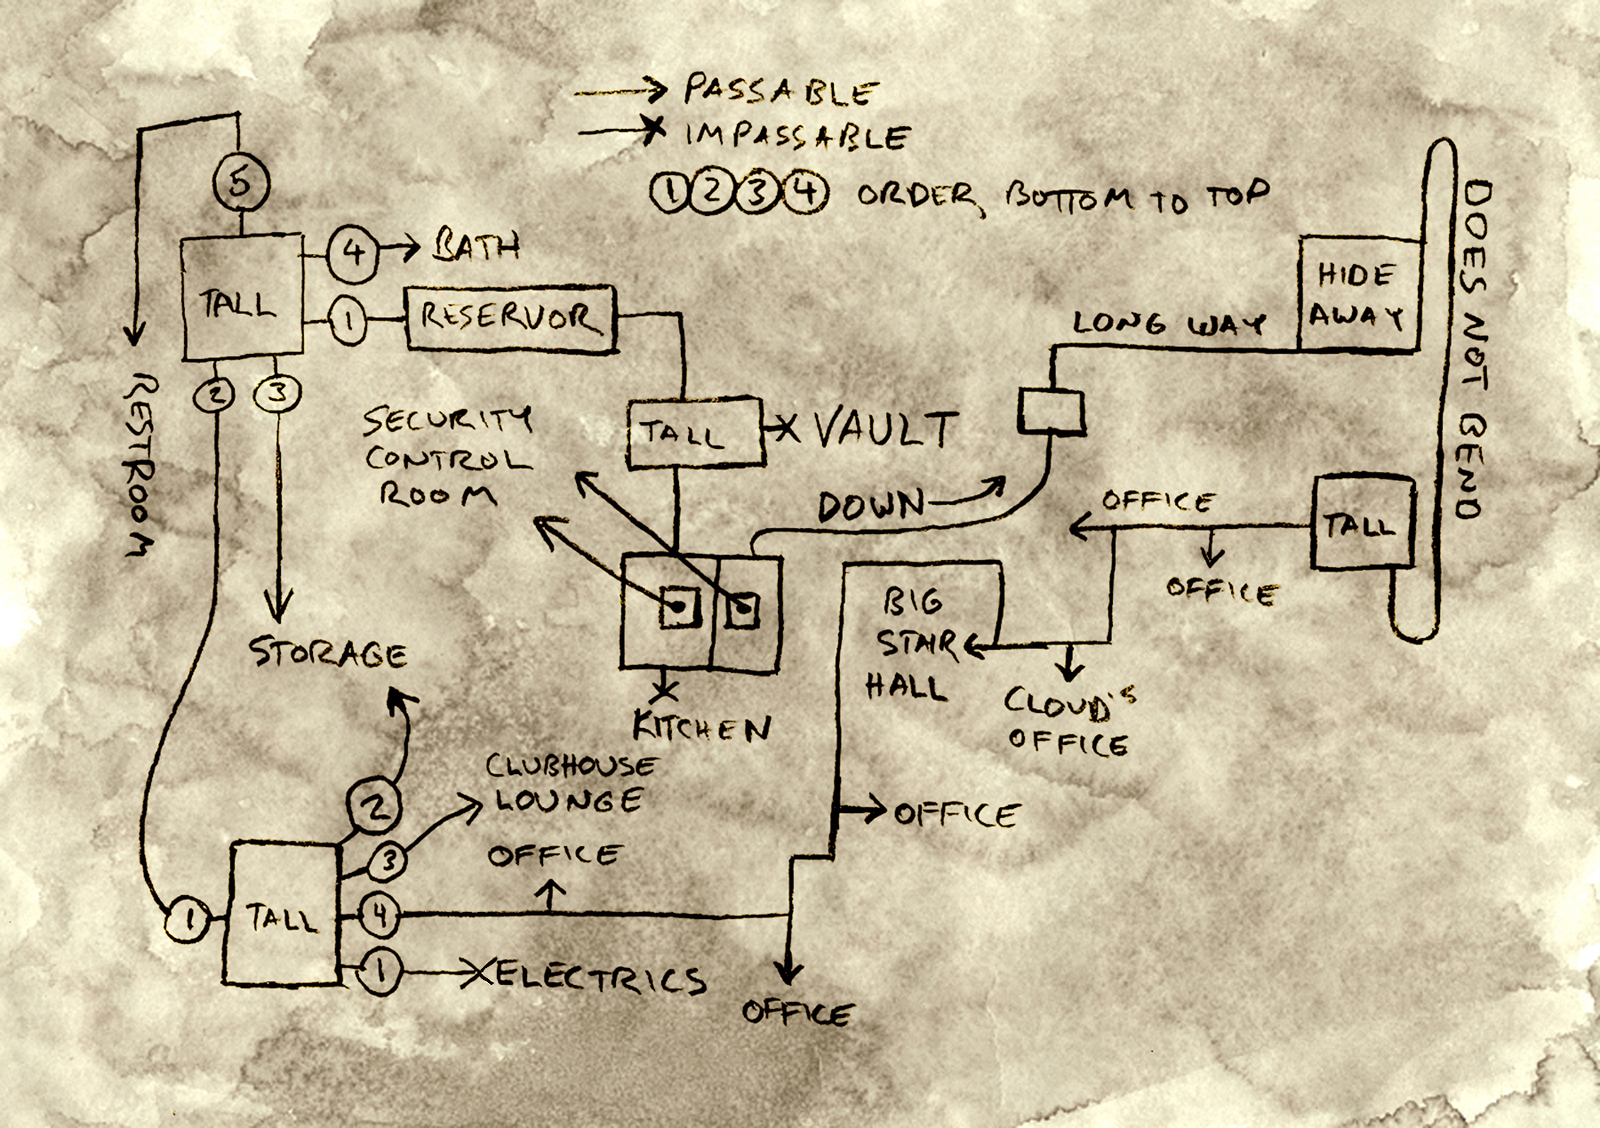 PASSABLE
IMPASSABLE
1 2 3 4 ORDER, BOTTOM TO TOP
5
4 BATH
TALL
1 RESERVOR
2 3
RESTROOM
SECURITY
CONTROL
ROOM
TALL
VAULT
LONG WAY
HIDE
AWAY
DOES NOT BEND
DOWN
OFFICE
OFFICE
TALL
BIG
STAIR
HALL
CLOUD'S
OFFICE
STORAGE
KITCHEN
2
CLUBHOUSE
LOUNGE
3
OFFICE
OFFICE
1
TALL
4
1
ELECTRICS
OFFICE